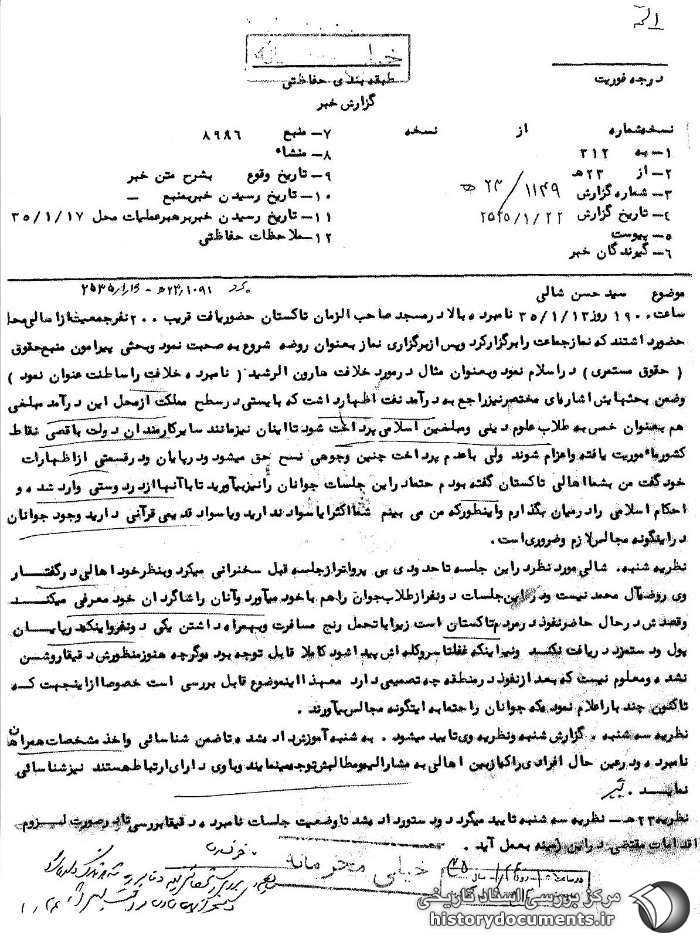 خیلی محرمانه
طبقه بندی حفاظتی
گزارش خبر
درجه فوریت
نسخه شماره از نسخه
۱- به ۳۱۲
۲- از ۲۳ ه‍
۳- شماره گزارش ۲۳/۱۱۴۹ ه‍
۴- تاریخ گزارش ۲۵۳۵/۱/۲۲
۵- پیوست
۶- گیرندگان خبر
۷- منبع ۸۹۸۶
۸- منشاء
۹- تاریخ وقوع بشرح متن خبر
۱۰- تاریخ رسیدن خبر بمنبع -
۱۱- تاریخ رسیدن خبر برهبر عملیات محل ۳۵/۱/۱۷
۱۲- ملاحظات حفاظتی
موضوع سید حسن شالی
ساعت ۱۹۰۰ روز ۳۵/۱/۱۳ نامبرده بالا در مسجد صاحب الزمان تاکستان حضور یافت قریب ۲۰۰ نفر جمعیت از اهالی محل
حضور داشتند که نماز جماعت را برگزار کرد و پس از برگزاری نماز بعنوان روضه شروع به صحبت نمود و بحثی پیرامون منبع حقوق
( حقوق مستمری ) در اسلام نمود و بعنوان مثال در مورد خلافت هارون الرشید ( نامبرده خلافت را سلطنت عنوان نمود )
و ضمن بحثهایش اشاره‌ای مختصر نیز راجع به درآمد نفت اظهار داشت که بایستی در سطح مملکت از محل این درآمد مبلغی
هم بعنوان خمس به طلاب علوم دینی و مبلغین اسلامی پرداخت شود تا اینان نیز مانند سایر کارمندان دولت باقصی نقاط
کشور ماموریت یافته و اعزام شوند ولی با عدم پرداخت چنین وجوهی نسخ حق میشود و در پایان و در قسمتی از اظهارات
خود گفت من بشما اهالی تاکستان گفته بودم حتما در این جلسات جوانان را نیز بیاورید تا با آنها از در دوستی وارد شده و
احکام اسلامی را در میان بگذارم و اینطور که من می بینم شما اکثرا یا سواد ندارید و یا سواد قدیمی قرآنی دارید وجود جوانان
در اینگونه مجالس لازم و ضروری است .
نظریه شنبه . شالی مورد نظر در این جلسه تا حدودی بی پرواتر از جلسه قبل سخنرانی میکرد و بنظر خود اهالی در گفتار
وی روضه آل محمد نیست و در این جلسات دو نفر از طلاب جوان را هم با خود میآورد و آنان را شاگردان خود معرفی میکند
و قصدش در حال حاضر نفوذ در مردم تاکستان است زیرا با تحمل رنج مسافرت و بهمراه داشتن یکی دو نفر و اینکه در پایان
پول و دستمزد دریافت نکند و نیز اینکه غفلتا سر و کله اش پیدا شود کاملا قابل توجه بود و گرچه هنوز منظورش دقیقا روشن
نشده و معلوم نیست که بعد از نفوذ در منطقه چه تصمیمی دارد معهذا این موضوع قابل بررسی است خصوصا از اینجهت که
تاکنون چند بار اعلام نموده که جوانان را حتما به اینگونه مجالس بیآورند .
نظریه سه شنبه . گزارش شنبه و نظریه وی تایید میشود . به شنبه آموزش داده شد تا ضمن شناسائی و اخذ مشخصات همراهان
نامبرده و در عین حال افرادی را که از بین اهالی به مشارالیه و مطالبش توجه مینمایند و با وی دارای ارتباط هستند نیز شناسائی
نماید .
نظریه ۲۳ ه‍ - نظریه سه شنبه تایید میگردد و دستور داده شد تا وضعیت جلسات نامبرده دقیقا بررسی تا در صورت لزوم
اقدامات مقتضی در این زمینه بعمل آید .
خیلی محرمانه
مرکز بررسی اسناد تاریخی
historydocuments.ir